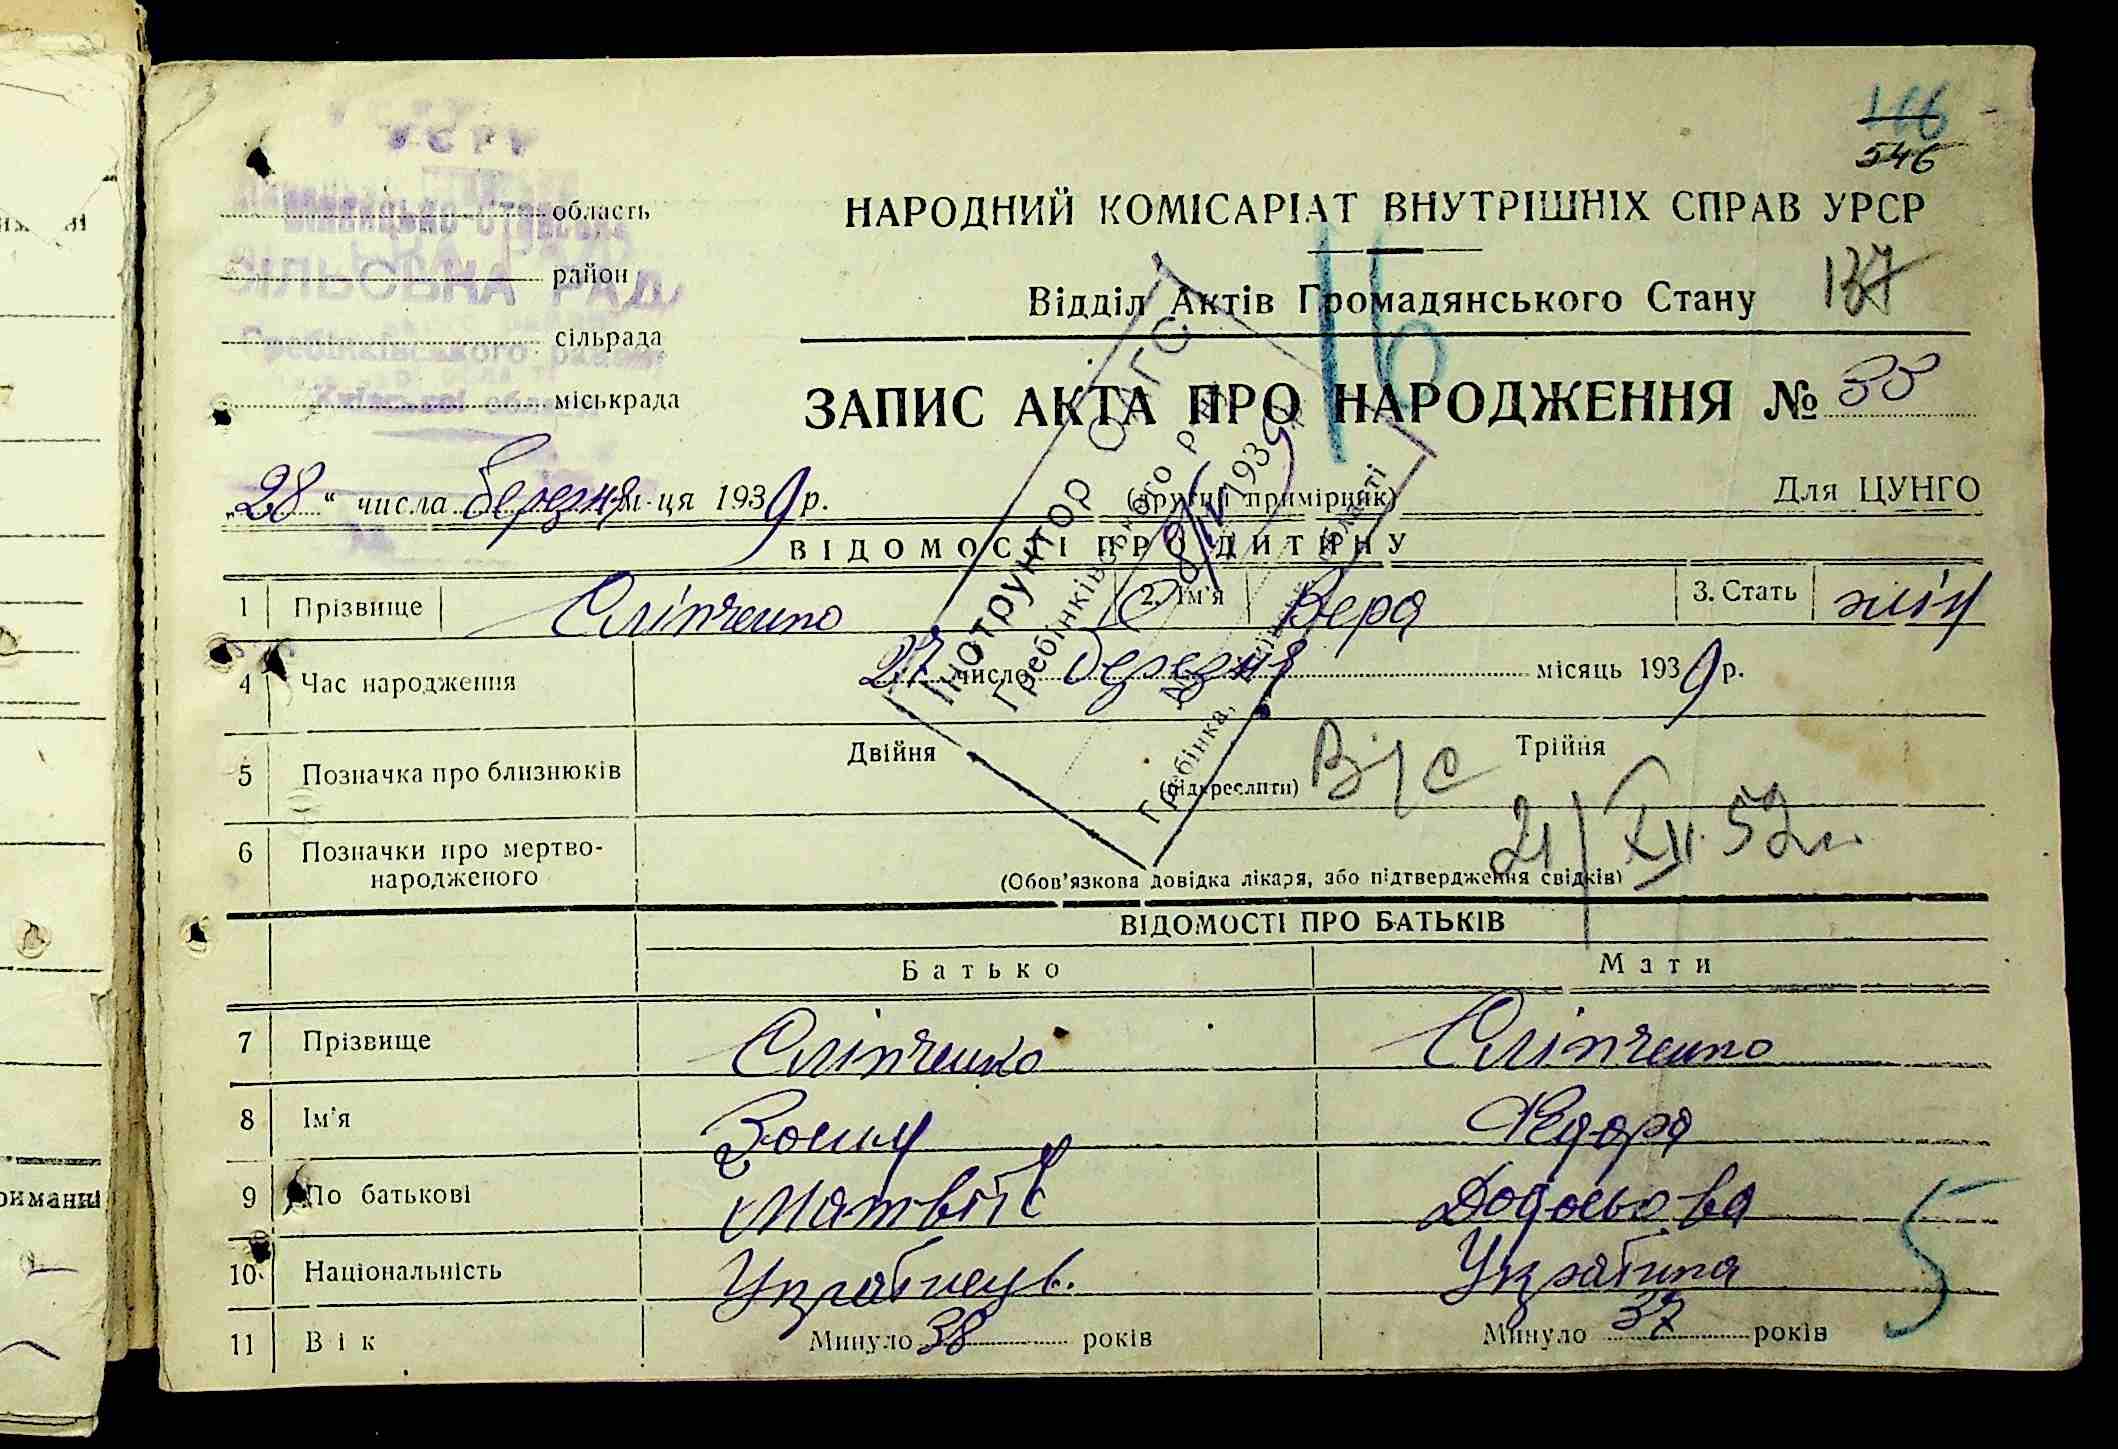 116
546
область
НАРОДНИЙ КОМІСАРІАТ ВНУТРІШНІХ СПРАВ УРСР
район
СІЛЬСЬКА РАДА
Відділ Актів Громадянського Стану
137
16
сільрада
Гребінківського району
міськрада
Київської області
ЗАПИС АКТА ПРО НАРОДЖЕННЯ № 33
„28“ числа березня м-ця 1939 р.
(другий примірник)
Для ЦУНГО
ВІДОМОСТІ ПРО ДИТИНУ
Інструктор ОАГС
Гребінківського р
8/IV 1939
Гребінка,
1 Прізвище Сліпченко 2. Ім'я Вера 3. Стать жін
4 Час народження 27 число березня місяць 1939 р.
5 Позначка про близнюків Двійня (підкреслити) Трійня
В/с
21/XII 52
6 Позначки про мертво-
народженого
(Обов'язкова довідка лікаря, або підтвердження свідків)
ВІДОМОСТІ ПРО БАТЬКІВ
Батько Мати
7 Прізвище Сліпченко Сліпченко
8 Ім'я Зосим Федора
9 По батькові Матвіїв
10 Національність Українець. Українка
5
11 Вік Минуло 38 років Минуло 37 років